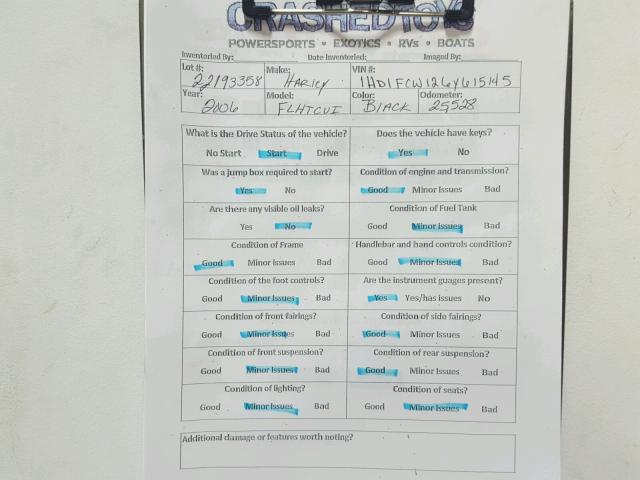 CRASHEDTOYS
POWERSPORTS • EXOTICS • RVs • BOATS
Inventoried By: Date Inventoried: Imaged By:
Lot #: 22193358 Make: HARLEY VIN #: 1HD1FCW126Y615145
Year: 2006 Model: FLHTCUI Color: BLACK Odometer: 25528
What is the Drive Status of the vehicle? Does the vehicle have keys?
No Start Start Drive Yes No
Was a jump box required to start? Condition of engine and transmission?
Yes No Good Minor Issues Bad
Are there any visible oil leaks? Condition of Fuel Tank
Yes No Good Minor Issues Bad
Condition of Frame Handlebar and hand controls condition?
Good Minor Issues Bad Good Minor Issues Bad
Condition of the foot controls? Are the instrument guages present?
Good Minor Issues Bad Yes Yes/has issues No
Condition of front fairings? Condition of side fairings?
Good Minor Issues Bad Good Minor Issues Bad
Condition of front suspension? Condition of rear suspension?
Good Minor Issues Bad Good Minor Issues Bad
Condition of lighting? Condition of seats?
Good Minor Issues Bad Good Minor Issues Bad
Additional damage or features worth noting?